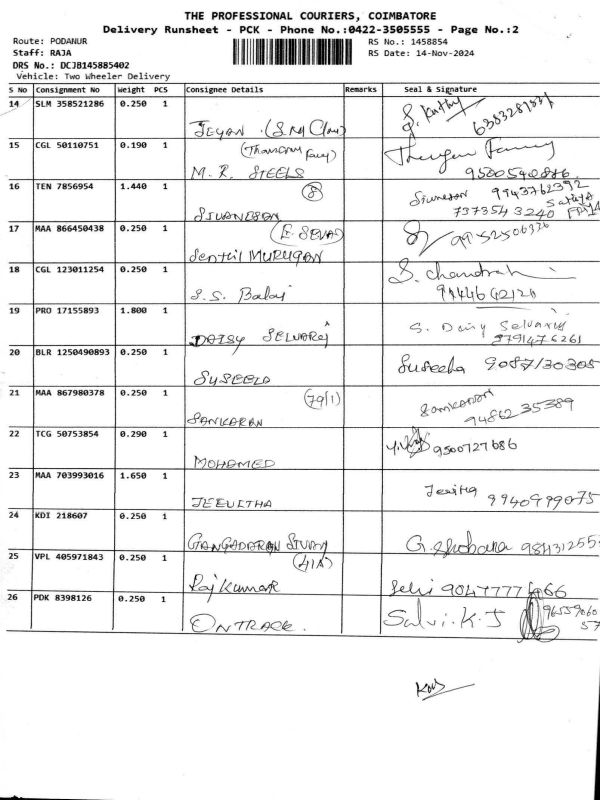 THE PROFESSIONAL COURIERS, COIMBATORE
Delivery Runsheet - PCK - Phone No.:0422-3505555 - Page No.:2
Route: PODANUR
RS No.: 1458854
Staff: RAJA
RS Date: 14-Nov-2024
DRS No.: DCJB145885402
Vehicle: Two Wheeler Delivery
S No Consignment No Weight PCS Consignee Details Remarks Seal & Signature
14 SLM 358521286 0.250 1
JEYAN
15 CGL 50110751 0.190 1
M. R. STEELS
9500540876
16 TEN 7856954 1.440 1
8
SIVANESAN
Sivanesan 9943762392
7373543240
17 MAA 866450438 0.250 1
SENTHIL MURUGAN
9952506326
18 CGL 123011254 0.250 1
S.S. Balaji
S. Chandrah
19 PRO 17155893 1.800 1
DAISY SELVARAJ
S. Daisy Selvaraj
9791476261
20 BLR 1250490893 0.250 1
SUSEELA
Suseela 9087130305
21 MAA 867980378 0.250 1
79/1
SANKARAN
Sankaran
9486235389
22 TCG 50753854 0.290 1
MOHAMED
9500727686
23 MAA 703993016 1.650 1
JEEVITHA
9940999075
24 KDI 218607 0.250 1
G. Shobana 984312555
25 VPL 405971843 0.250 1
41A
Raj Kumar
Selvi 9047777566
26 PDK 8398126 0.250 1
ONTRACK.
Salvi.K.J